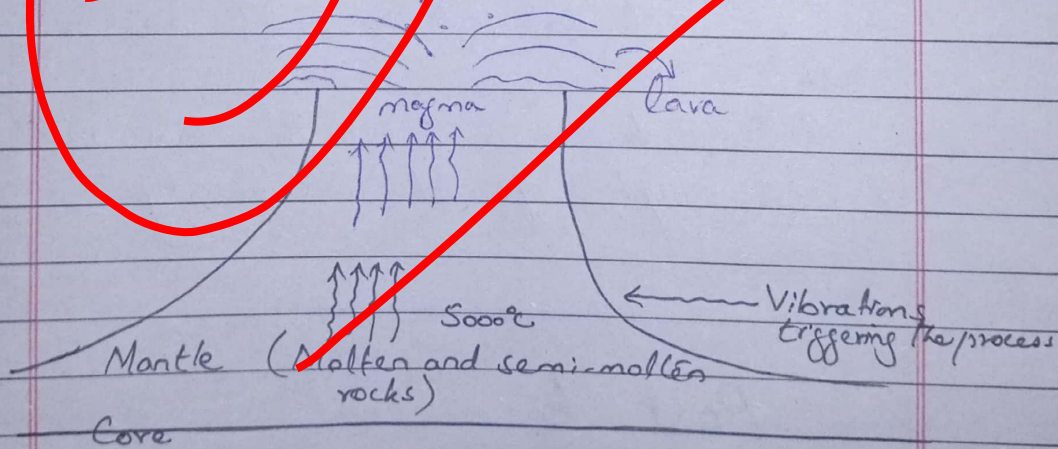 magma
lava
5000°C
Vibrations
triggering the process
Mantle (Molten and semi-molten
rocks)
Core